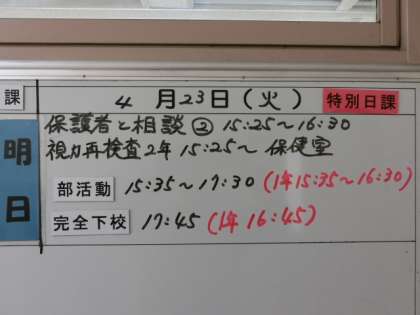 課 4月23日(火) 特別日課
明日
保護者と相談② 15:25〜16:30
視力再検査2年 15:25〜 保健室
部活動 15:35〜17:30 (1年15:35〜16:30)
完全下校 17:45 (1年 16:45)